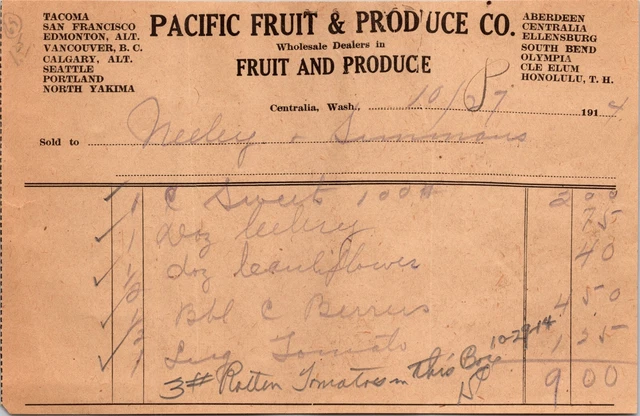 TACOMA
SAN FRANCISCO
EDMONTON, ALT.
VANCOUVER, B. C.
CALGARY, ALT.
SEATTLE
PORTLAND
NORTH YAKIMA
PACIFIC FRUIT & PRODUCE CO.
Wholesale Dealers in
FRUIT AND PRODUCE
ABERDEEN
CENTRALIA
ELLENSBURG
SOUTH BEND
OLYMPIA
CLE ELUM
HONOLULU, T. H.
Centralia, Wash., 10/27 1914
Sold to Neeley & Simmons
1 C Sweet 100# 2 00
1 doz celery 75
1 doz cauliflower 40
1/2 Bbl C Berries 4 50
1 Lug Tomato 1 35
3# Rotten Tomatoes in this Box 10-29-14
9 00